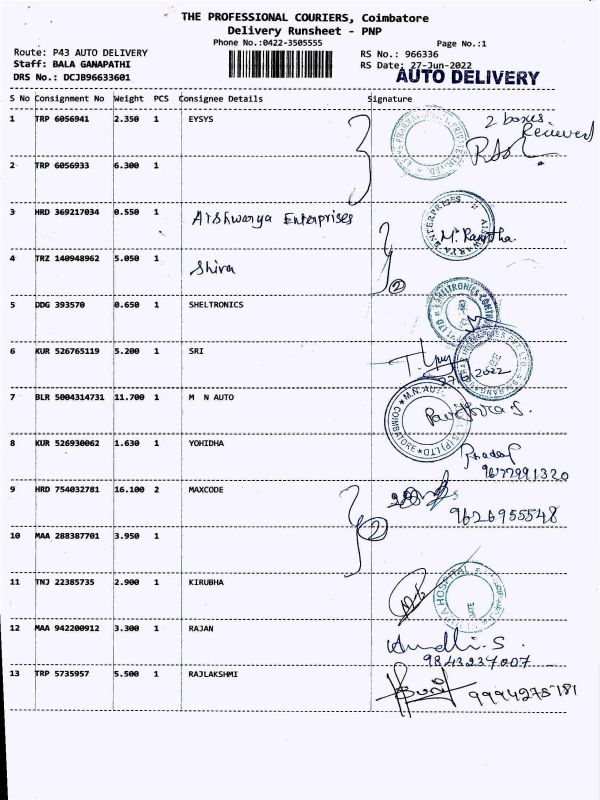 THE PROFESSIONAL COURIERS, Coimbatore
Delivery Runsheet - PNP
Phone No.:0422-3505555
Page No.:1
Route: P43 AUTO DELIVERY
RS No.: 966336
Staff: BALA GANAPATHI
RS Date: 27-Jun-2022
DRS No.: DCJB96633601
AUTO DELIVERY
S No Consignment No Weight PCS Consignee Details Signature
1 TRP 6056941 2.350 1 EYSYS
2 boxes
Recieved
2 TRP 6056933 6.300 1
3 HRD 369217034 0.550 1 Aishwarya Enterprises
4 TRZ 140948962 5.050 1 Shiva
2
5 DDG 393570 0.650 1 SHELTRONICS
6 KUR 526765119 5.200 1 SRI
27/6/2022
7 BLR 5004314731 11.700 1 M N AUTO
M.N.AUTO
COIMBATORE
8 KUR 526930062 1.630 1 YOHIDHA
Pradeep
9677991320
9 HRD 754032781 16.100 2 MAXCODE
9626955548
10 MAA 288387701 3.950 1
2
11 TNJ 22385735 2.900 1 KIRUBHA
HOSPITAL
DATE
12 MAA 942200912 3.300 1 RAJAN
9843237007
13 TRP 5735957 5.500 1 RAJLAKSHMI
9994275181